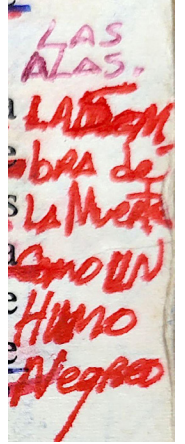 LAS
ALAS.
LA SOM
bRA de
LA MueRte
COMO UN
HUMO
NegRo